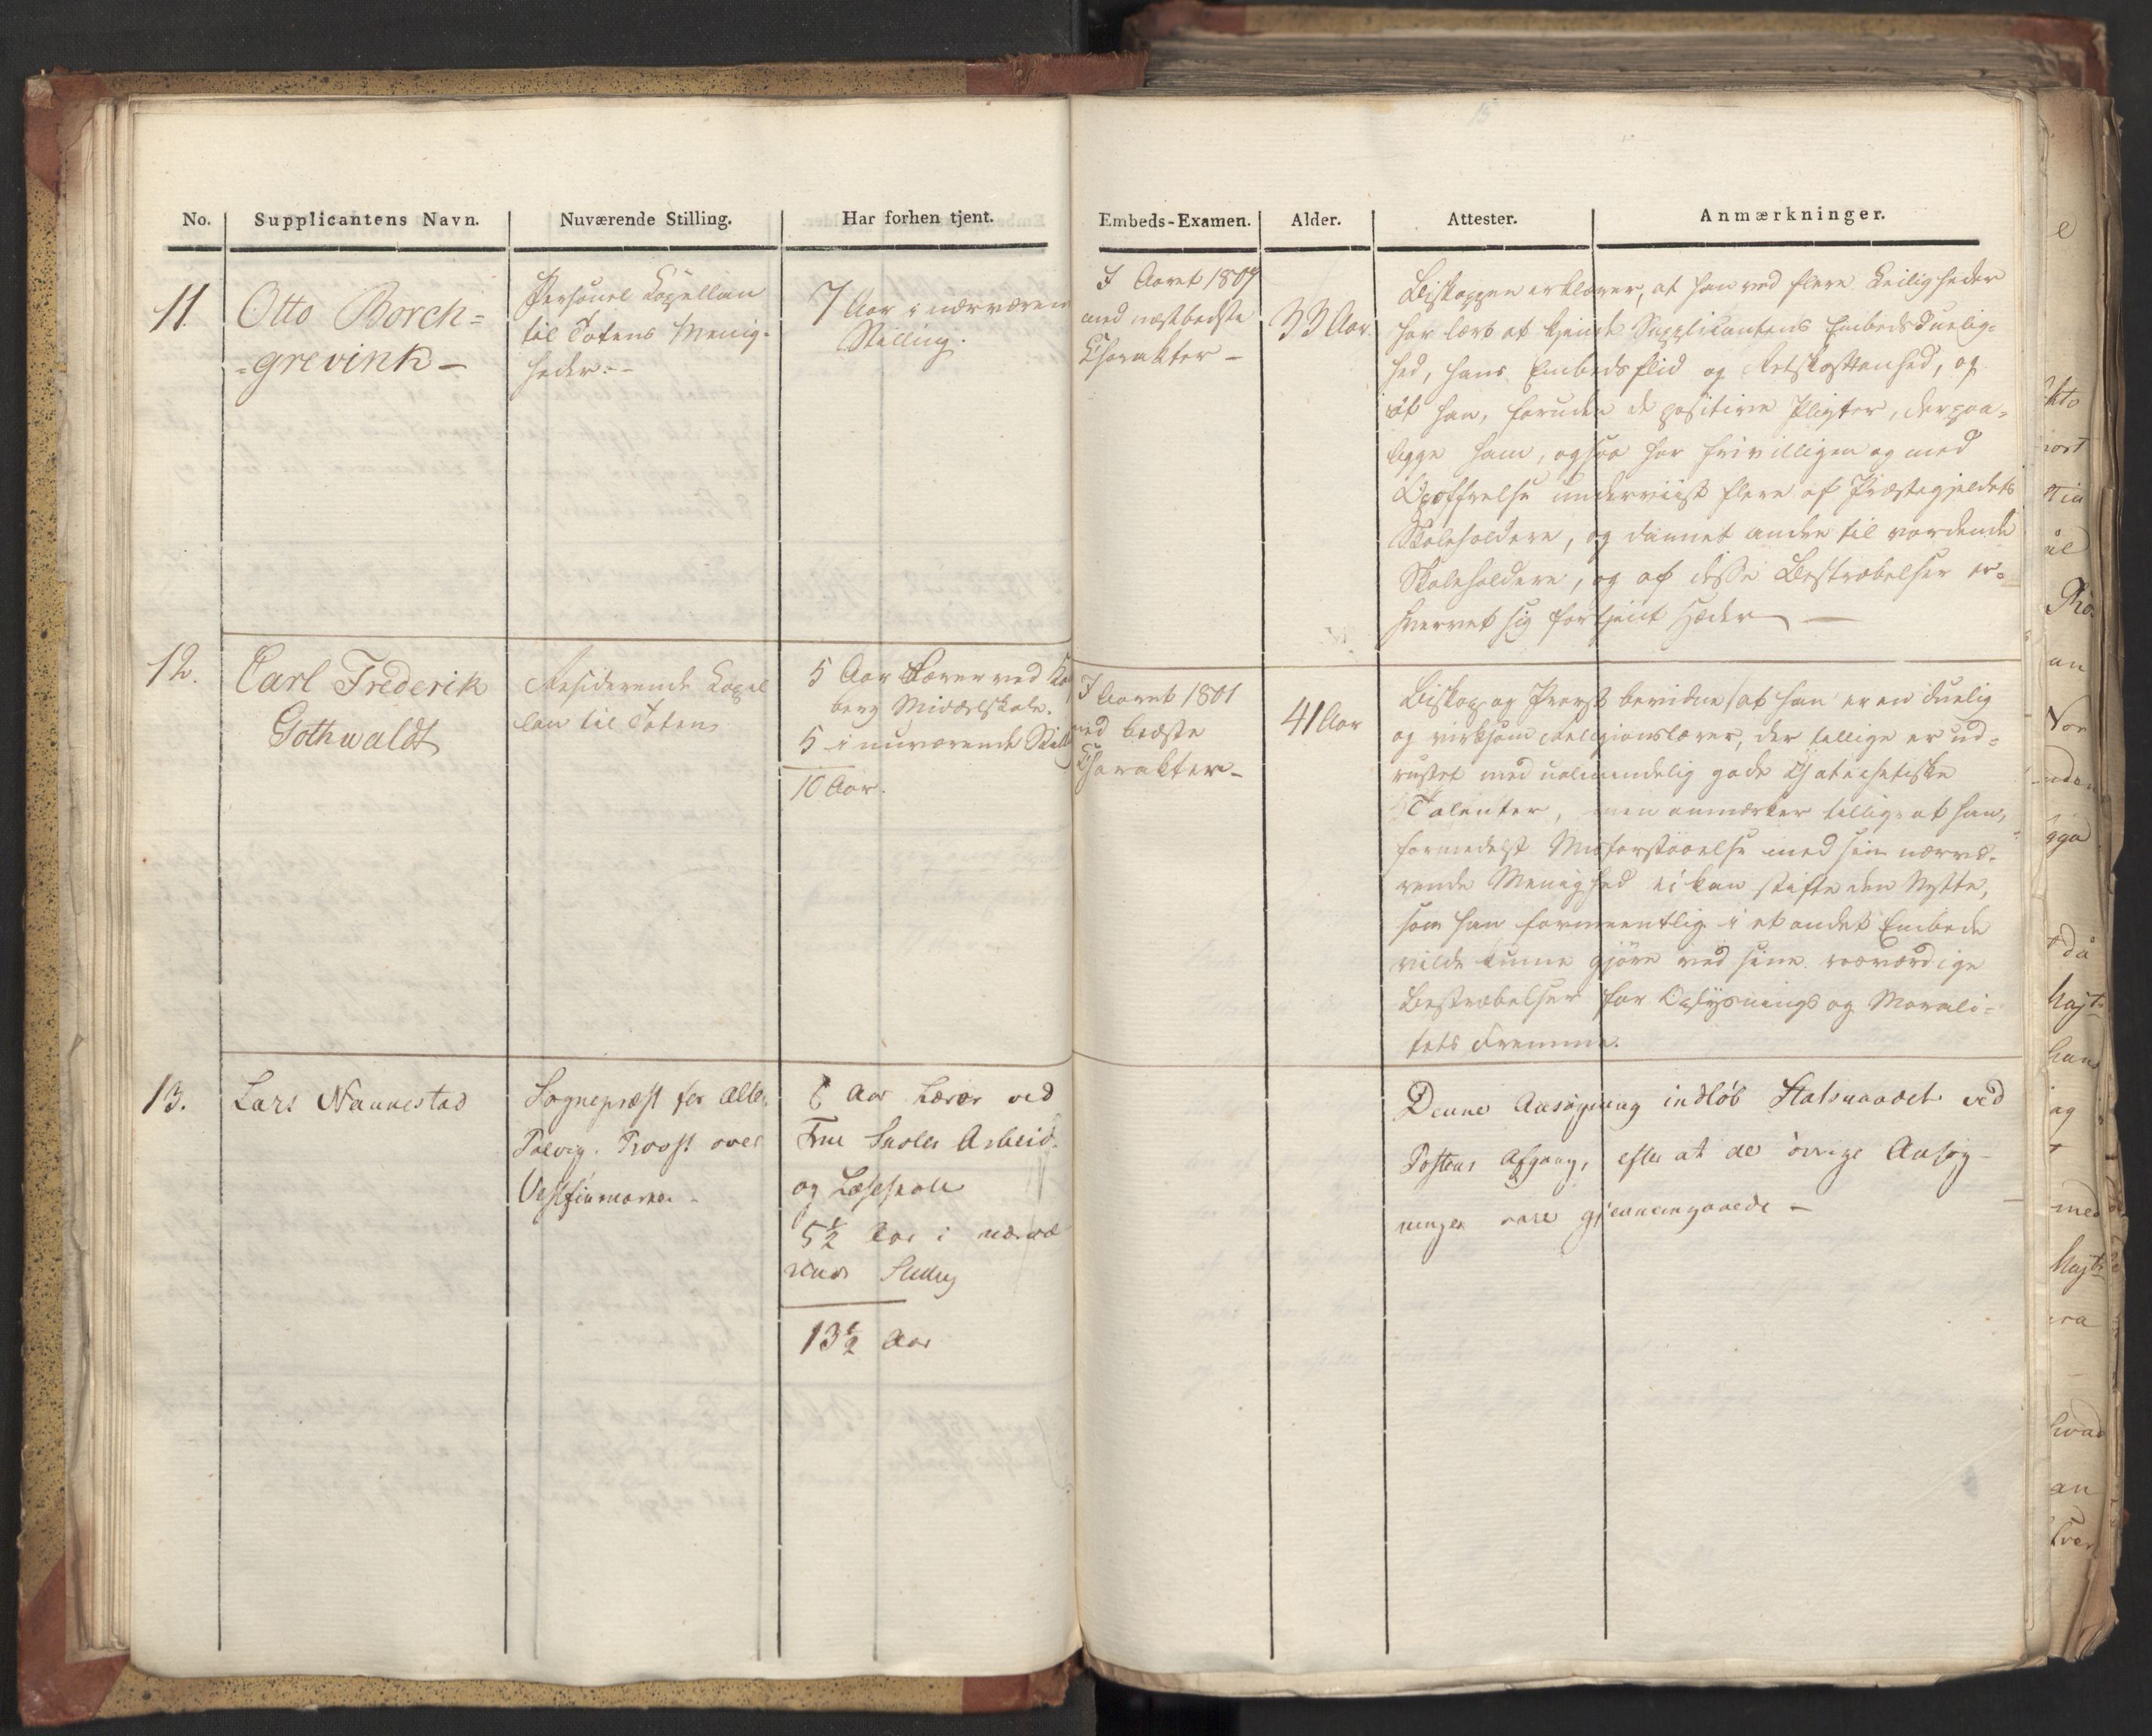 No.
Supplicantens Navn.
Nuværende Stilling.
Har forhen tjent.
Embeds-Examen.
Alder.
Attester.
Anmærkninger.
11.
Otto Borch=
=grevink –
Personel Capellan
til Totens Menig-
heder. –
7 Aar i nærværen
Stilling.
I Aaret 1809
med næstbedste
Charakter –
33 Aar.
Biskoppen erklærer, at han ved flere Leiligheder
har lært at kjende Supplicantens Embedsduelig=
hed, hans Embedsflid og Retskaffenhed, og
at han, foruden de positive Pligter, der paa=
ligge ham, ogsaa har frivilligen og med
Opoffrelse underviist flere af Præstegjeldets
Skoleholdere, og dannet andre til vordende
Skoleholdere, og af disse Bestræbelser er=
hvervet sig fortjent Hæder –
12.
Carl Frederik
Gothwaldt
Residerende Capel
lan til Toten
5 Aar Lærer ved
berg Middelskole.
5 – i nuværende Still
10 Aar.
I Aaret 1801
med bedste
Charakter –
41 Aar
Biskop og Provst bevidne, at han er en duelig
og virksom Religionslærer, der tillige er ud=
rustet med ualmindelig gode Chatechetiske
Talenter, men anmærker tillige at han,
formedelst Misforstaaelse med sin nærvæ-
rende Menighed ei kan stifte den Nytte,
som han formeentlig i et andet Embede
vilde kunne gjöre ved sine roesværdige
Bestræbelser for Oplysnings og Morali=
tets Fremme.
13.
Lars Nannestad
Sognepræst for Alte
Talvig. Provst over
Vestfinmarken –
8 Aar Lærer ved
Frue Skoles Arbeid-
og Læseskole
5½ Aar i nærvæ
rende Stilling
13½ Aar
Denne Ansøgning indløb Statsraadet ved
Postens Afgang, efter at de øvrige Ansøg-
ninger vare gjennemgaaede –